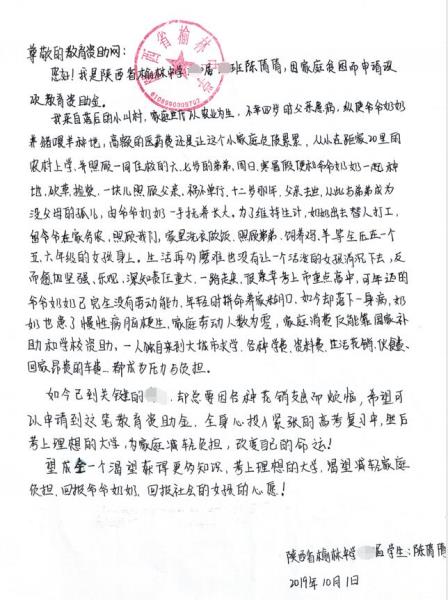 尊敬的教育资助网：
陕西省榆林中学
您好！我是陕西省榆林中学 届 班陈萌萌，因家庭贫困而申请这
次教育资助金。
我来自落后的小山村，家庭世代以农业为生，不幸四岁时父亲患病，纵使爷爷奶奶
养猪喂羊种地，高额的医药费还是让这个小家庭负债累累，从小在距家20里的
农村上学，并照顾一同住校的六、七岁的弟弟，周日、寒暑假便和爷爷奶奶一起种
地、砍草、拾柴，一块儿照顾父亲。祸不单行，十二岁那年，父亲去世，从此与弟弟成为
没父母的孤儿，由爷爷奶奶一手抚养长大。为了维持生计，奶奶出去替人打工，
留爷爷在家务农，照顾我们，家里洗衣做饭、照顾弟弟、饲养鸡、羊等全压在一个
五六年级的女孩身上。生活再多磨难也没有让一个活泼的女孩消沉下去，反
而愈加坚强、乐观，深知责任重大，一路走来，很荣幸考上市重点高中，可年迈的
爷爷奶奶已完全没有劳动能力，年轻时拼命养家糊口，如今却落下一身病，奶
奶也患了慢性病脑梗塞，家庭劳动人数为零，家庭消费只能靠国家补
助和学校资助，一人独自来到大城市求学，各种学费、资料费、生活花销、伙食费、
回家昂贵的车费…都成为压力与负担。
如今已到关键的 ，却总要因各种花销支出而烦恼，希望可
以申请到这笔教育资助金，全身心投入紧张的高考复习中，然后
考上理想的大学，为家庭减轻负担，改变自己的命运！
望成全一个渴望获得更多知识、考上理想的大学、渴望减轻家庭
负担、回报爷爷奶奶、回报社会的女孩的心愿！
陕西省榆林中学 届学生：陈萌萌
2019年10月1日